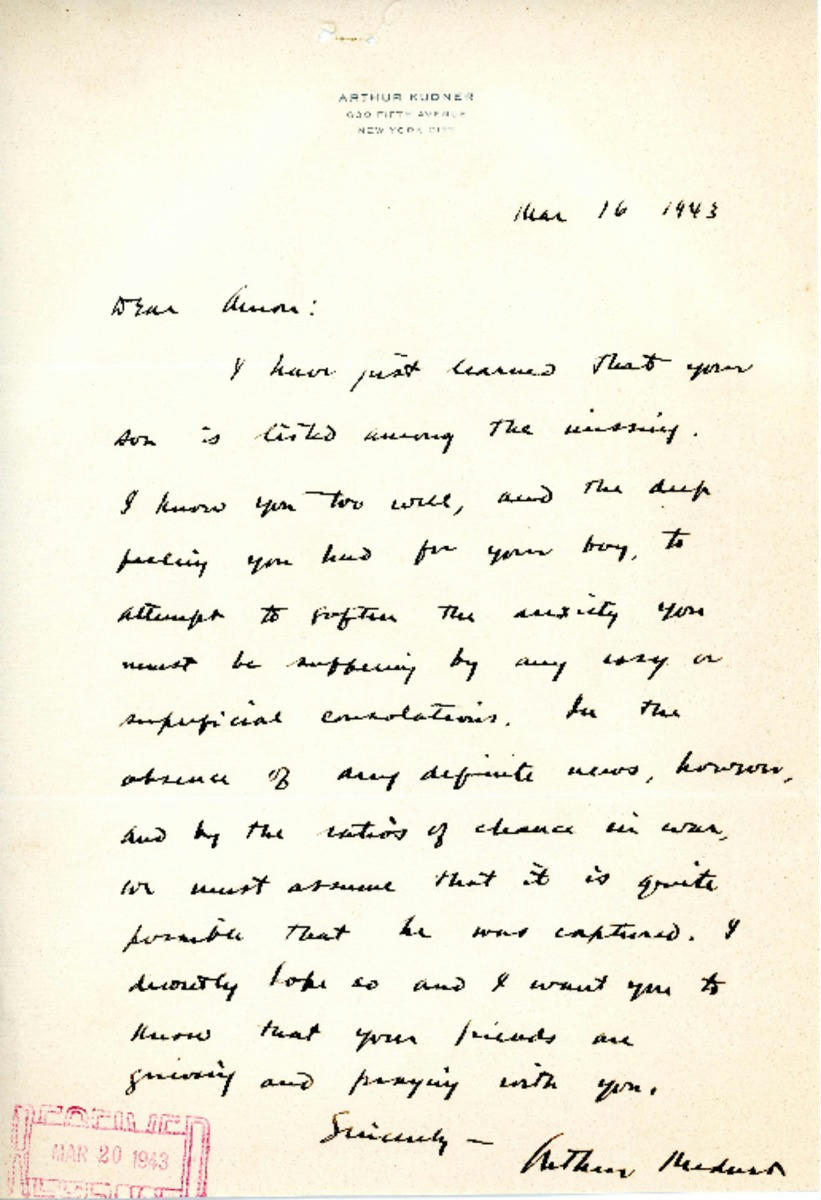 ARTHUR KUDNER
630 FIFTH AVENUE
NEW YORK CITY
Mar 16 1943
Dear Amon:
I have just learned that your
son is listed among the missing.
I know you too well, and the deep
feeling you had for your boy, to
attempt to soften the anxiety you
must be suffering by any easy or
superficial consolations. In the
absence of any definite news, however,
and by the ratios of chance in war,
we must assume that it is quite
possible that he was captured. I
devoutly hope so and I want you to
know that your friends are
grieving and praying with you.
Sincerely —
Arthur Kudner
MAR 20 1943